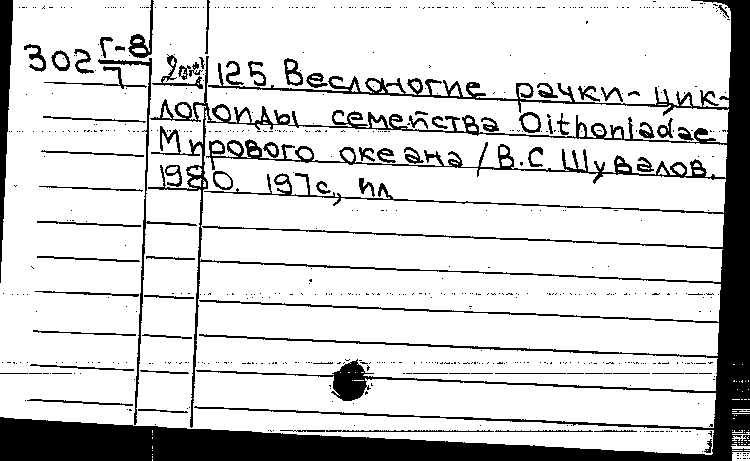 302 Г-8/7 2 экз 125. Веслоногие рачки-цик-
лопоиды семейства Oithoniadae
Мирового океана / В.С. Шувалов.
1980. 197с., ил